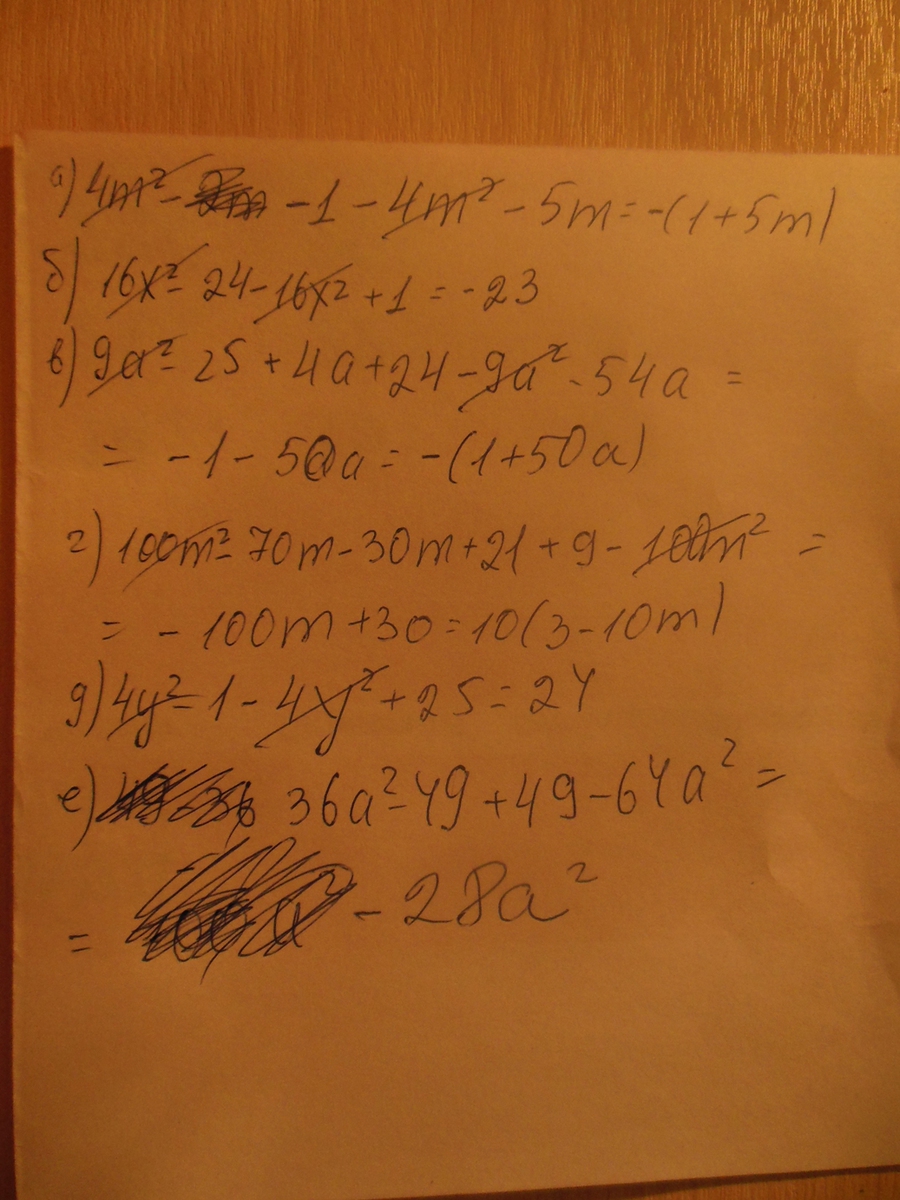 а) 4m² - 2m - 1 - 4m² - 5m = -(1+5m)
б) 16x² - 24 - 16x² + 1 = -23
в) 9a² - 25 + 4a + 24 - 9a² - 54a =
= -1 - 50a = -(1+50a)
г) 100m² - 70m - 30m + 21 + 9 - 100m² =
= - 100m + 30 = 10(3 - 10m)
д) 4y² - 1 - 4y² + 25 = 24
е) 36a² - 49 + 49 - 64a² =
= - 28a²